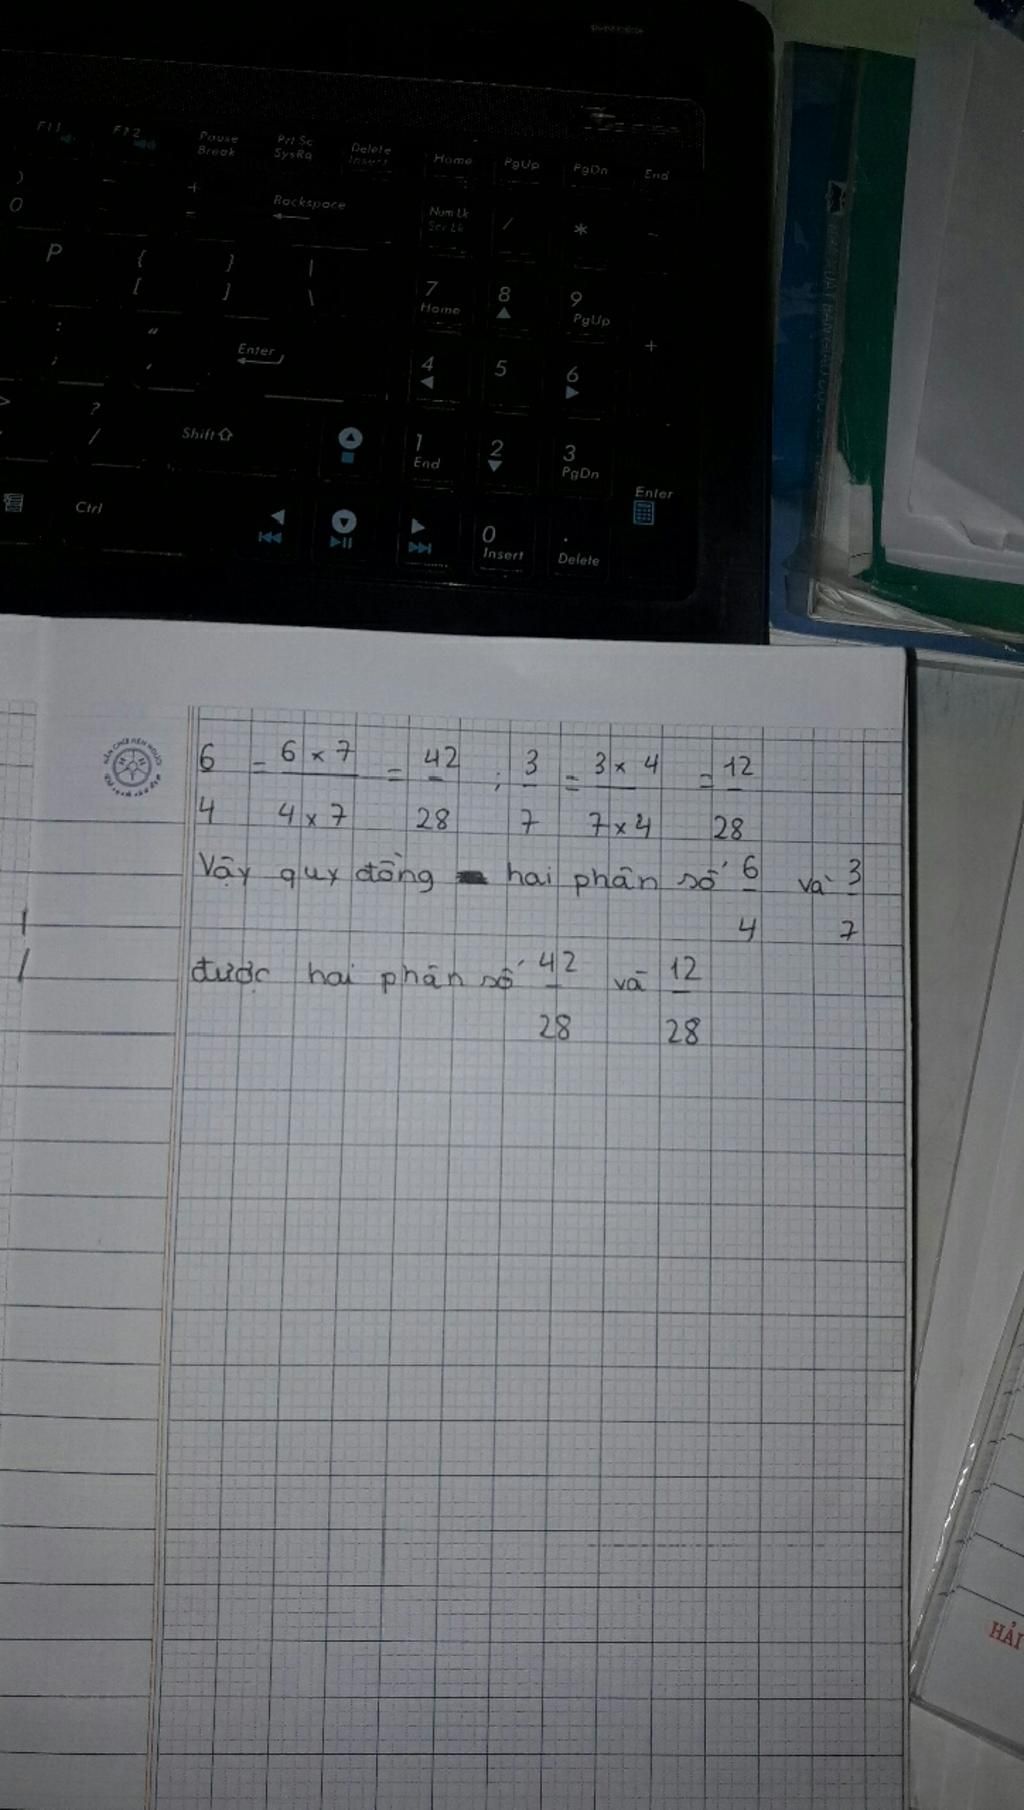 F11 F12 Pause Break Prt Sc SysRq Delete Insert Home PgUp PgDn End
) 0 - + = Backspace Num Lk Scr Lk / * -
P { [ } ] | \ 7 Home 8 9 PgUp +
: ; " ' Enter 4 5 6
> ? / Shift 1 End 2 3 PgDn Enter
Ctrl 0 Insert . Delete
6/4 = 6 x 7 / 4 x 7 = 42/28 ; 3/7 = 3 x 4 / 7 x 4 = 12/28
Vậy quy đồng hai phân số 6/4 và 3/7
được hai phân số 42/28 và 12/28
HẢI